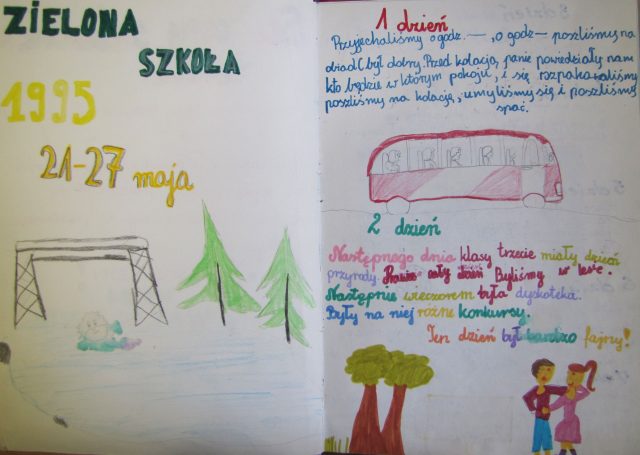 ZIELONA
SZKOŁA
1995
21-27 maja
1 dzień
Przyjechaliśmy o godz. —, o godz — poszliśmy na
obiad (był dobry. Przed kolacją, panie powiedziały nam
kto będzie w którym pokoju, i się rozpakowaliśmy
poszliśmy na kolację, umyliśmy się i poszliśmy
spać.
2 dzień
Następnego dnia klasy trzecie miały dzień
przyrody. cały dzień Byliśmy w lesie.
Następnie wieczorem była dyskoteka.
Były na niej różne konkursy.
Ten dzień był bardzo fajny!